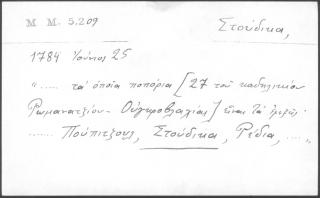 M M. 5.209
Στούδικα,
1784 Ιούνιος 25
"..... τα όποία ποπόρια [27 του καδηλικίου
Ρωμανατζίου - Ούγκροβλαχίας] είναι τα έξης
...... Πούπιτζους, Στούδικα, Ρέδια, ....."